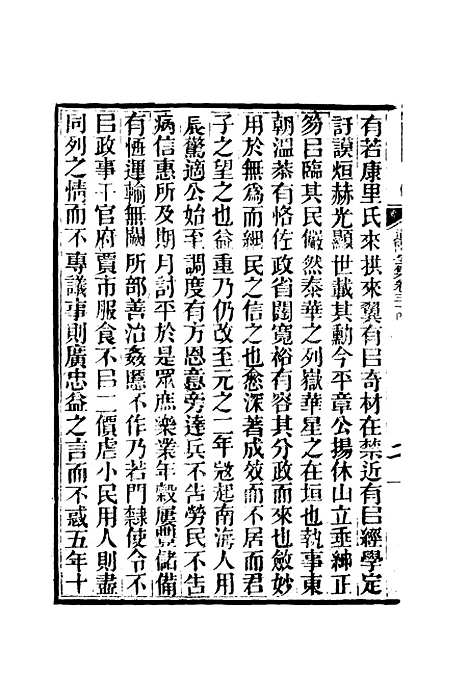 有若康里氏來拱來翼有㠯奇材在禁近有㠯經學定
訏謨烜赫光顯世載其勳今平章公揚休山立垂紳正
笏㠯臨其民儼然泰華之列嶽華星之在垣也執事東
朝溫恭有恪佐政省闥寬裕有容其分政而來也斂妙
用於無爲而細民之信之也愈深著成效而不居而君
子之望之也益重乃仍改至元之二年寇起南海人用
辰驚適公始至調度有方恩意旁達兵不告勞民不告
病信惠所及期月討平於是眾庶樂業年穀屢豐儲備
有恆運輸無闕所部善治姦慝不作乃若門隸使令不
㠯政事干官府賈市服食不㠯二價虐小民用人則盡
同列之情而不專議事則廣忠益之言而不惑五年十